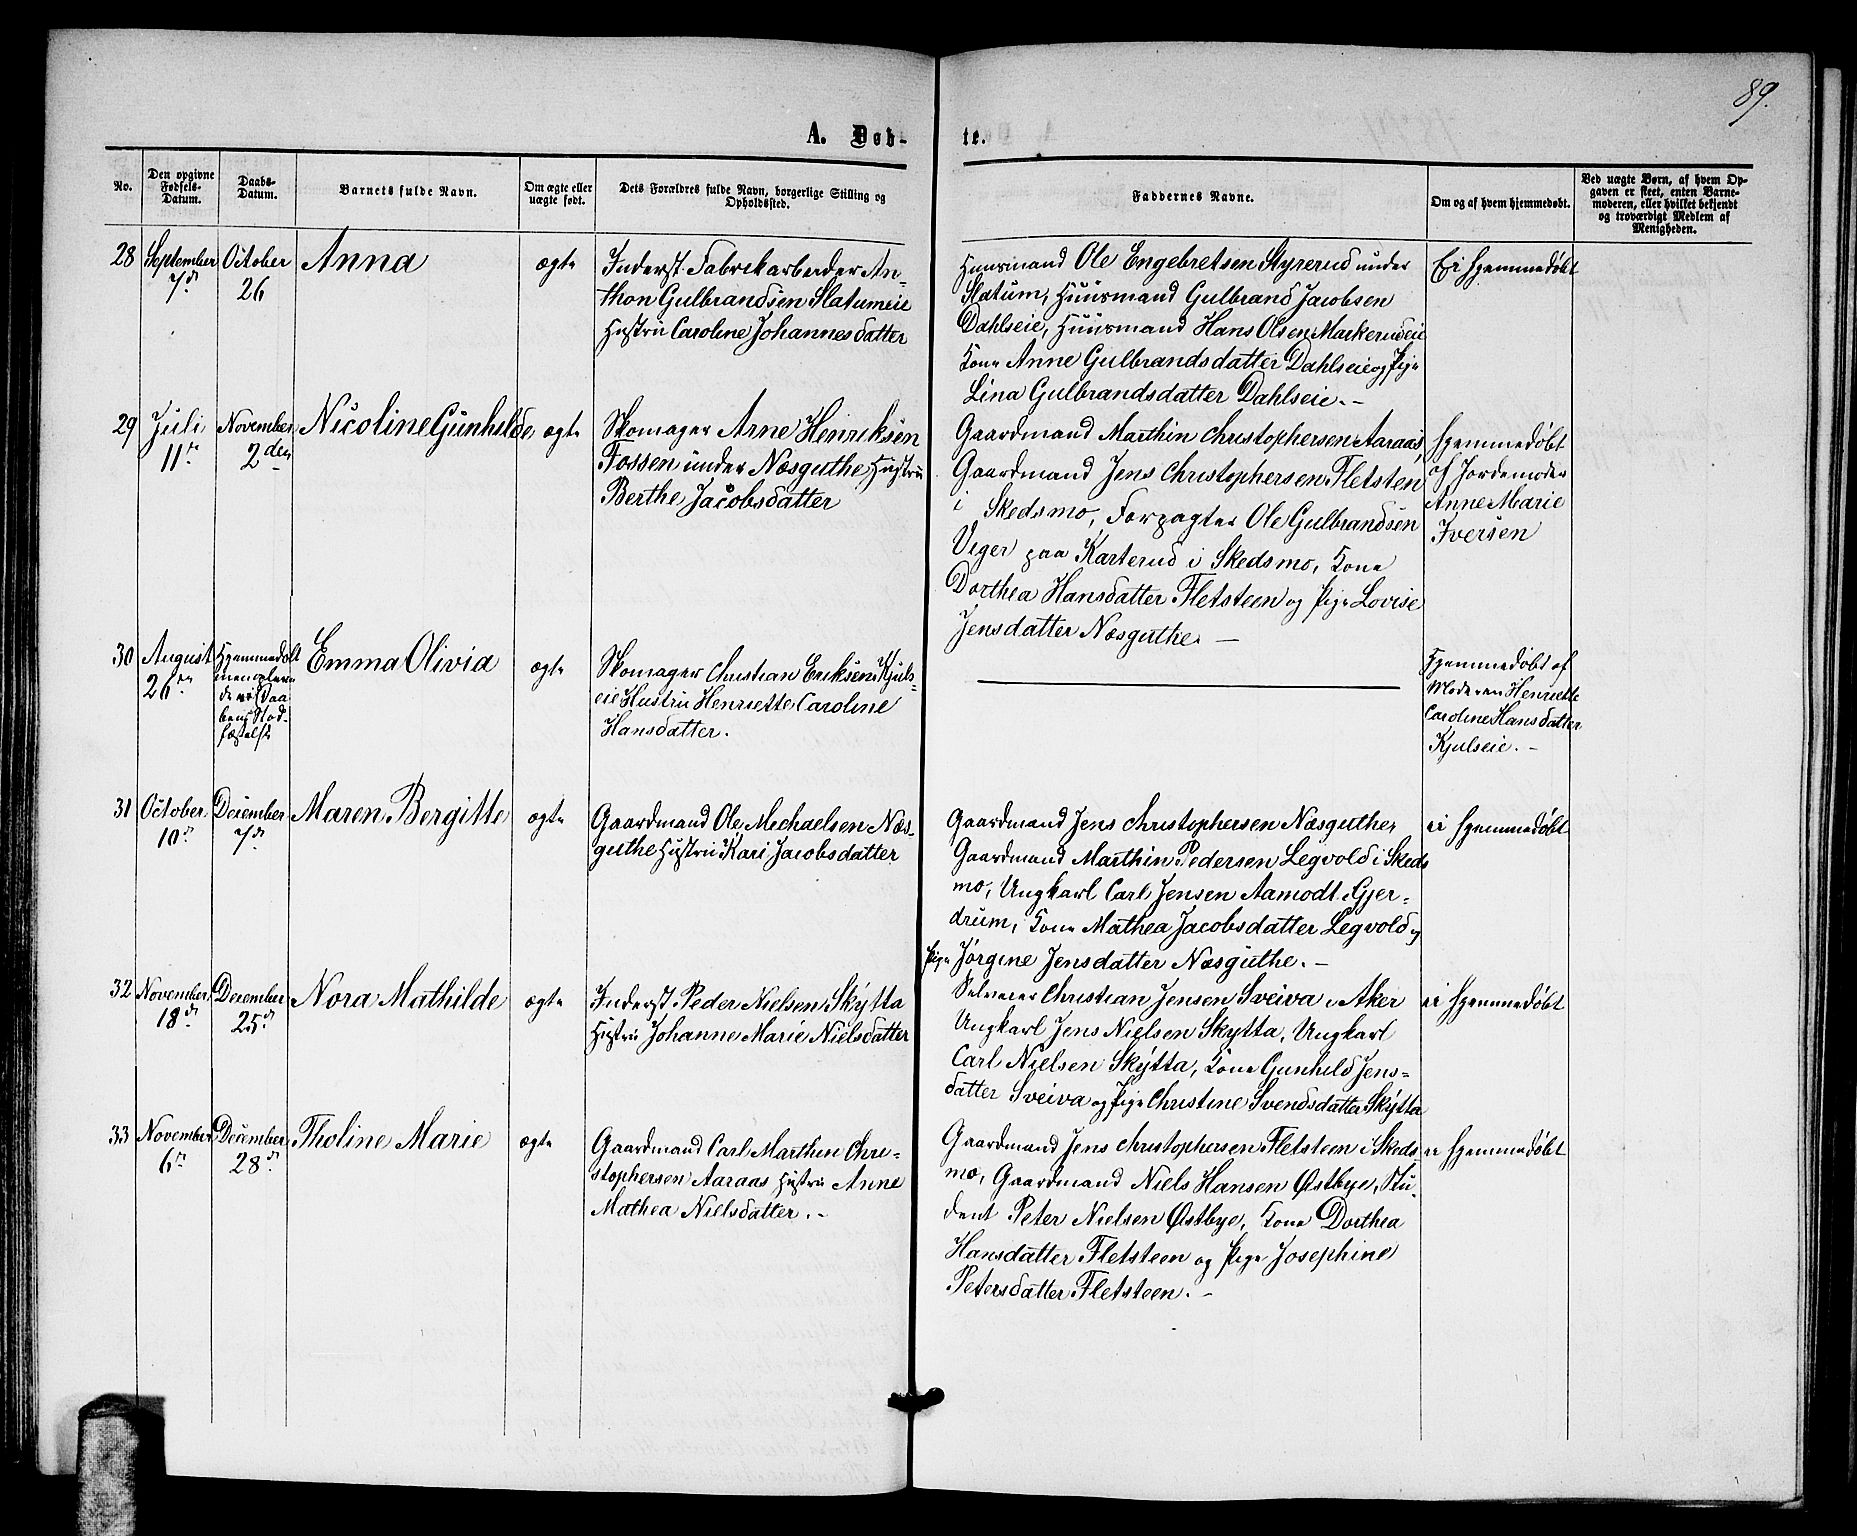 89.
A. Døb-
te.
No.
Den opgivne
Fødsels-
Datum.
Daabs-
Datum.
Barnets fulde Navn.
Om ægte eller
uægte født.
Dets Forældres fulde Navn, borgerlige Stilling og
Opholdssted.
Faddernes Navne.
Om og af hvem hjemmedøbt.
Ved uægte Børn, af hvem Op-
gaven er skeet, enten Barne-
moderen, eller hvilket bekjendt
og troværdigt Medlem af
Menigheden.
28
September
7d
October
26
Anna
ægte
Inderst Fabrikarbeider An-
thon Gulbrandsen Slatumeie
Hustru Caroline Johannesdatter
Huusmand Ole Engebretsen Styrerud under
Slatum, Huusmand Gulbrand Jacobsen
Dahlseie, Huusmand Hans Olsen Markerudeie
Kone Anne Gulbrandsdatter Dahlseie og Pige
Lina Gulbrandsdatter Dahlseie. -
Ei hjemmedøbt
29
Juli
11te
November
2den
Nicoline Gunhilde
ægte
Skomager Arne Henriksen
Fossen under Næsguthe Hustru
Berthe Jacobsdatter
Gaardmand Marthin Christophersen Aaraas,
Gaardmand Jens Christophersen Fletsten
i Skedsmo, Forpagter Ole Gulbrandsen
Veger paa Karterud i Skedsmo, Kone
Dorthea Hansdatter Fletsteen og Pige Lovise
Jensdatter Næsguthe. -
Hjemmedøbt
af Jordemoder
Anne Marie
Iversen
30
August
26de
Hjemmedøbt
men oplev
de ei Daa
bens Stad-
fæstelse
Emma Olivia
ægte
Skomager Christian Eriksen Kjuls-
eie Hustru Henriette Caroline
Hansdatter.
Hjemmedøbt af
Moderen Henriette
Caroline Hansdatter
Kjulseie. -
31
October
10d
December
7d
Maren Bergitte
ægte
Gaardmand Ole Michaelsen Næs-
guthe Hustru Kari Jacobsdatter
Gaardmand Jens Christophersen Næsguthe,
Gaardmand Marthin Pedersen Legvold i Skeds
mo, Ungkarl Carl Jensen Aamodt i Gjer-
drum, Kone Mathea Jacobsdatter Legvold og
Pige Jørgine Jensdatter Næsguthe. -
ei hjemmedøbt
32
November
18d
December
25d
Nora Mathilde
ægte
Inderst Peder Nielsen Skytta
Hustru Johanne Marie Nielsdatter
Selveier Christian Jensen Sveiva i Aker
Ungkarl Jens Nielsen Skytta, Ungkarl
Carl Nielsen Skytta, Kone Gunhild Jens-
datter Sveiva og Pige Christine Svendsdatter Skytta
ei hjemmedøbt
33
November
6te
December
28d
Tholine Marie
ægte
Gaardmand Carl Marthin Chri-
stophersen Aaraas Hustru Anne
Mathea Nielsdatter. -
Gaardmand Jens Christophersen Fletsteen i Skeds-
mo, Gaardmand Niels Hansen Østbye, Stu-
dent Peter Nielsen Østbye, Kone Dorthea
Hansdatter Fletsteen og Pige Josephine
Petersdatter Fletsteen. -
ei hjemmedøbt